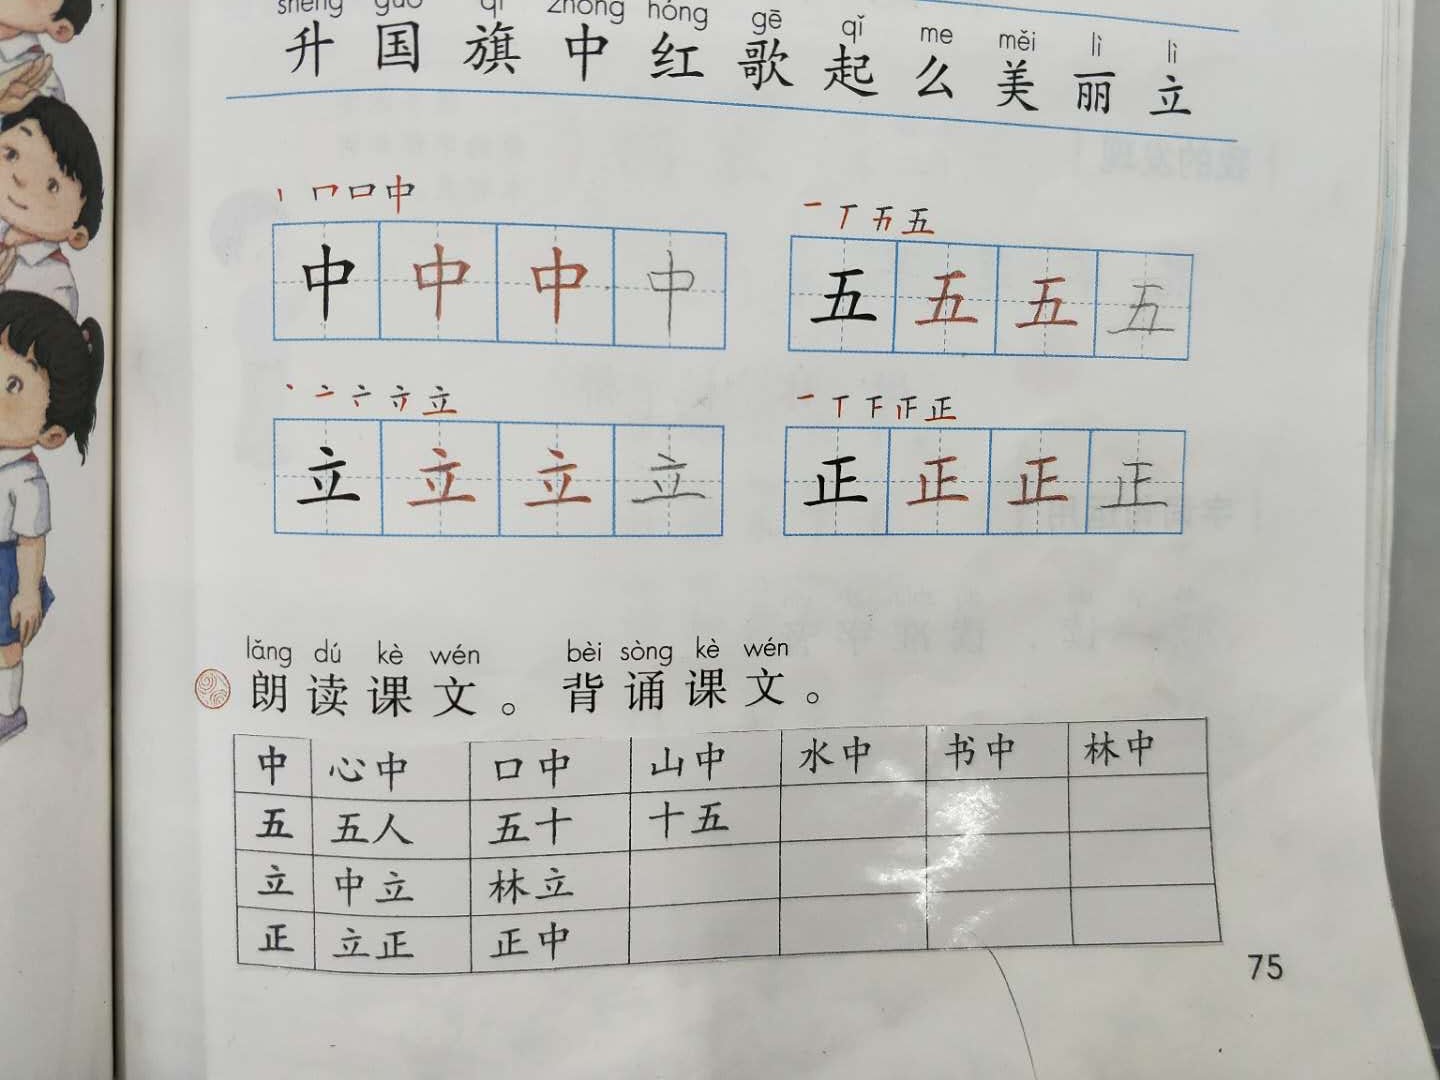 shēng guó qí zhōng hóng gē qǐ me měi lì lì
升 国 旗 中 红 歌 起 么 美 丽 立
丨 冂 口 中
中 中 中 中
一 丅 五
五 五 五 五
丶 亠 立
立 立 立 立
一 丅 下 正
正 正 正 正
lǎng dú kè wén bèi sòng kè wén
朗 读 课 文 。 背 诵 课 文 。
中 心中 口中 山中 水中 书中 林中
五 五人 五十 十五
立 中立 林立
正 立正 正中
75